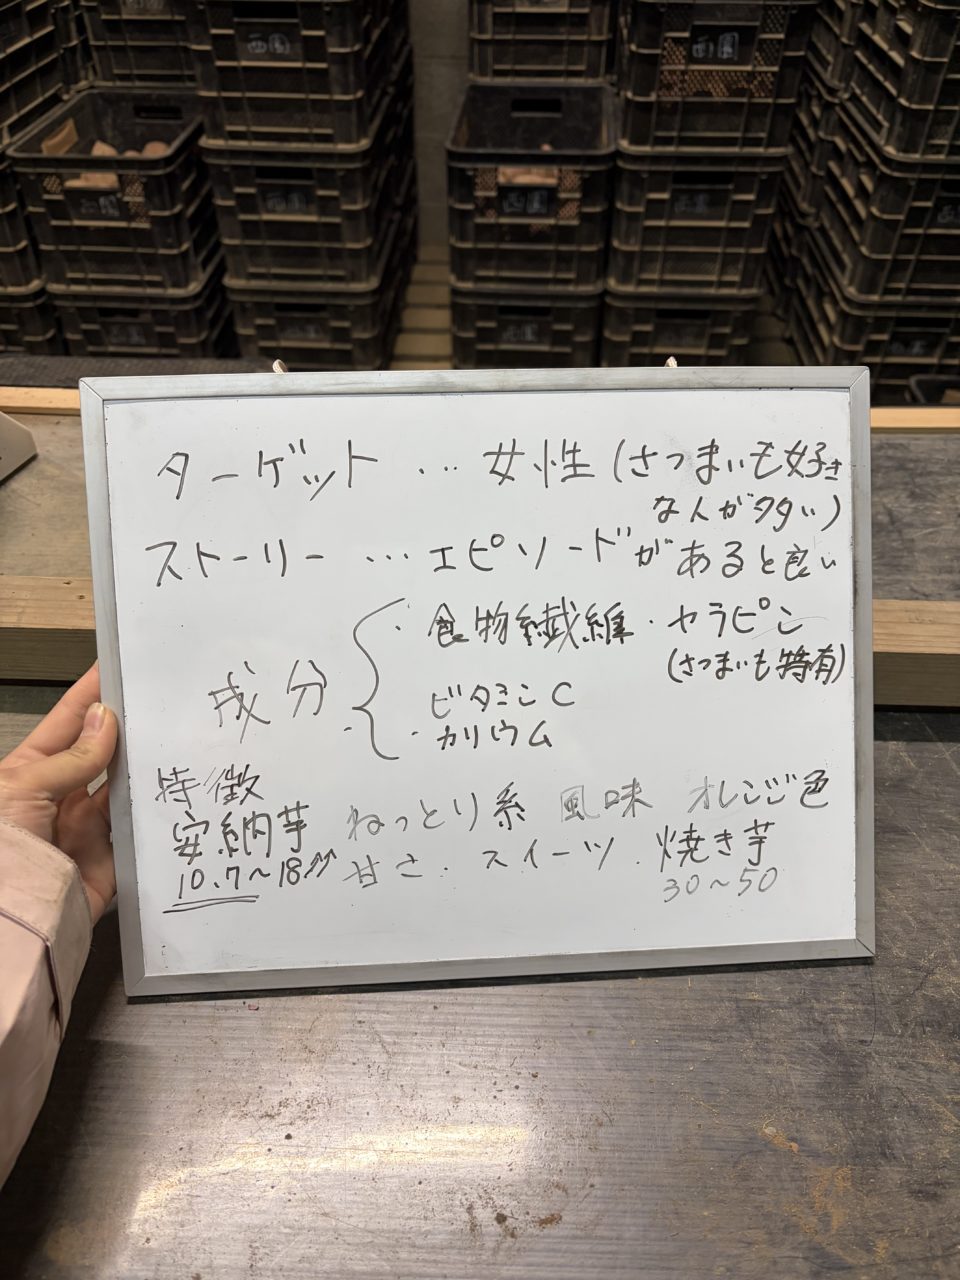 西園
西園
西園
西園
ターゲット … 女性 (さつまいも好き
な人が多い)
ストーリー … エピソードがあると良い
成分
・食物繊維・ヤラピン
(さつまいも特有)
ビタミンC
・カリウム
特徴
安納芋 ねっとり系 風味 オレンジ色
10.7〜18 甘さ・スイーツ・焼き芋
30〜50